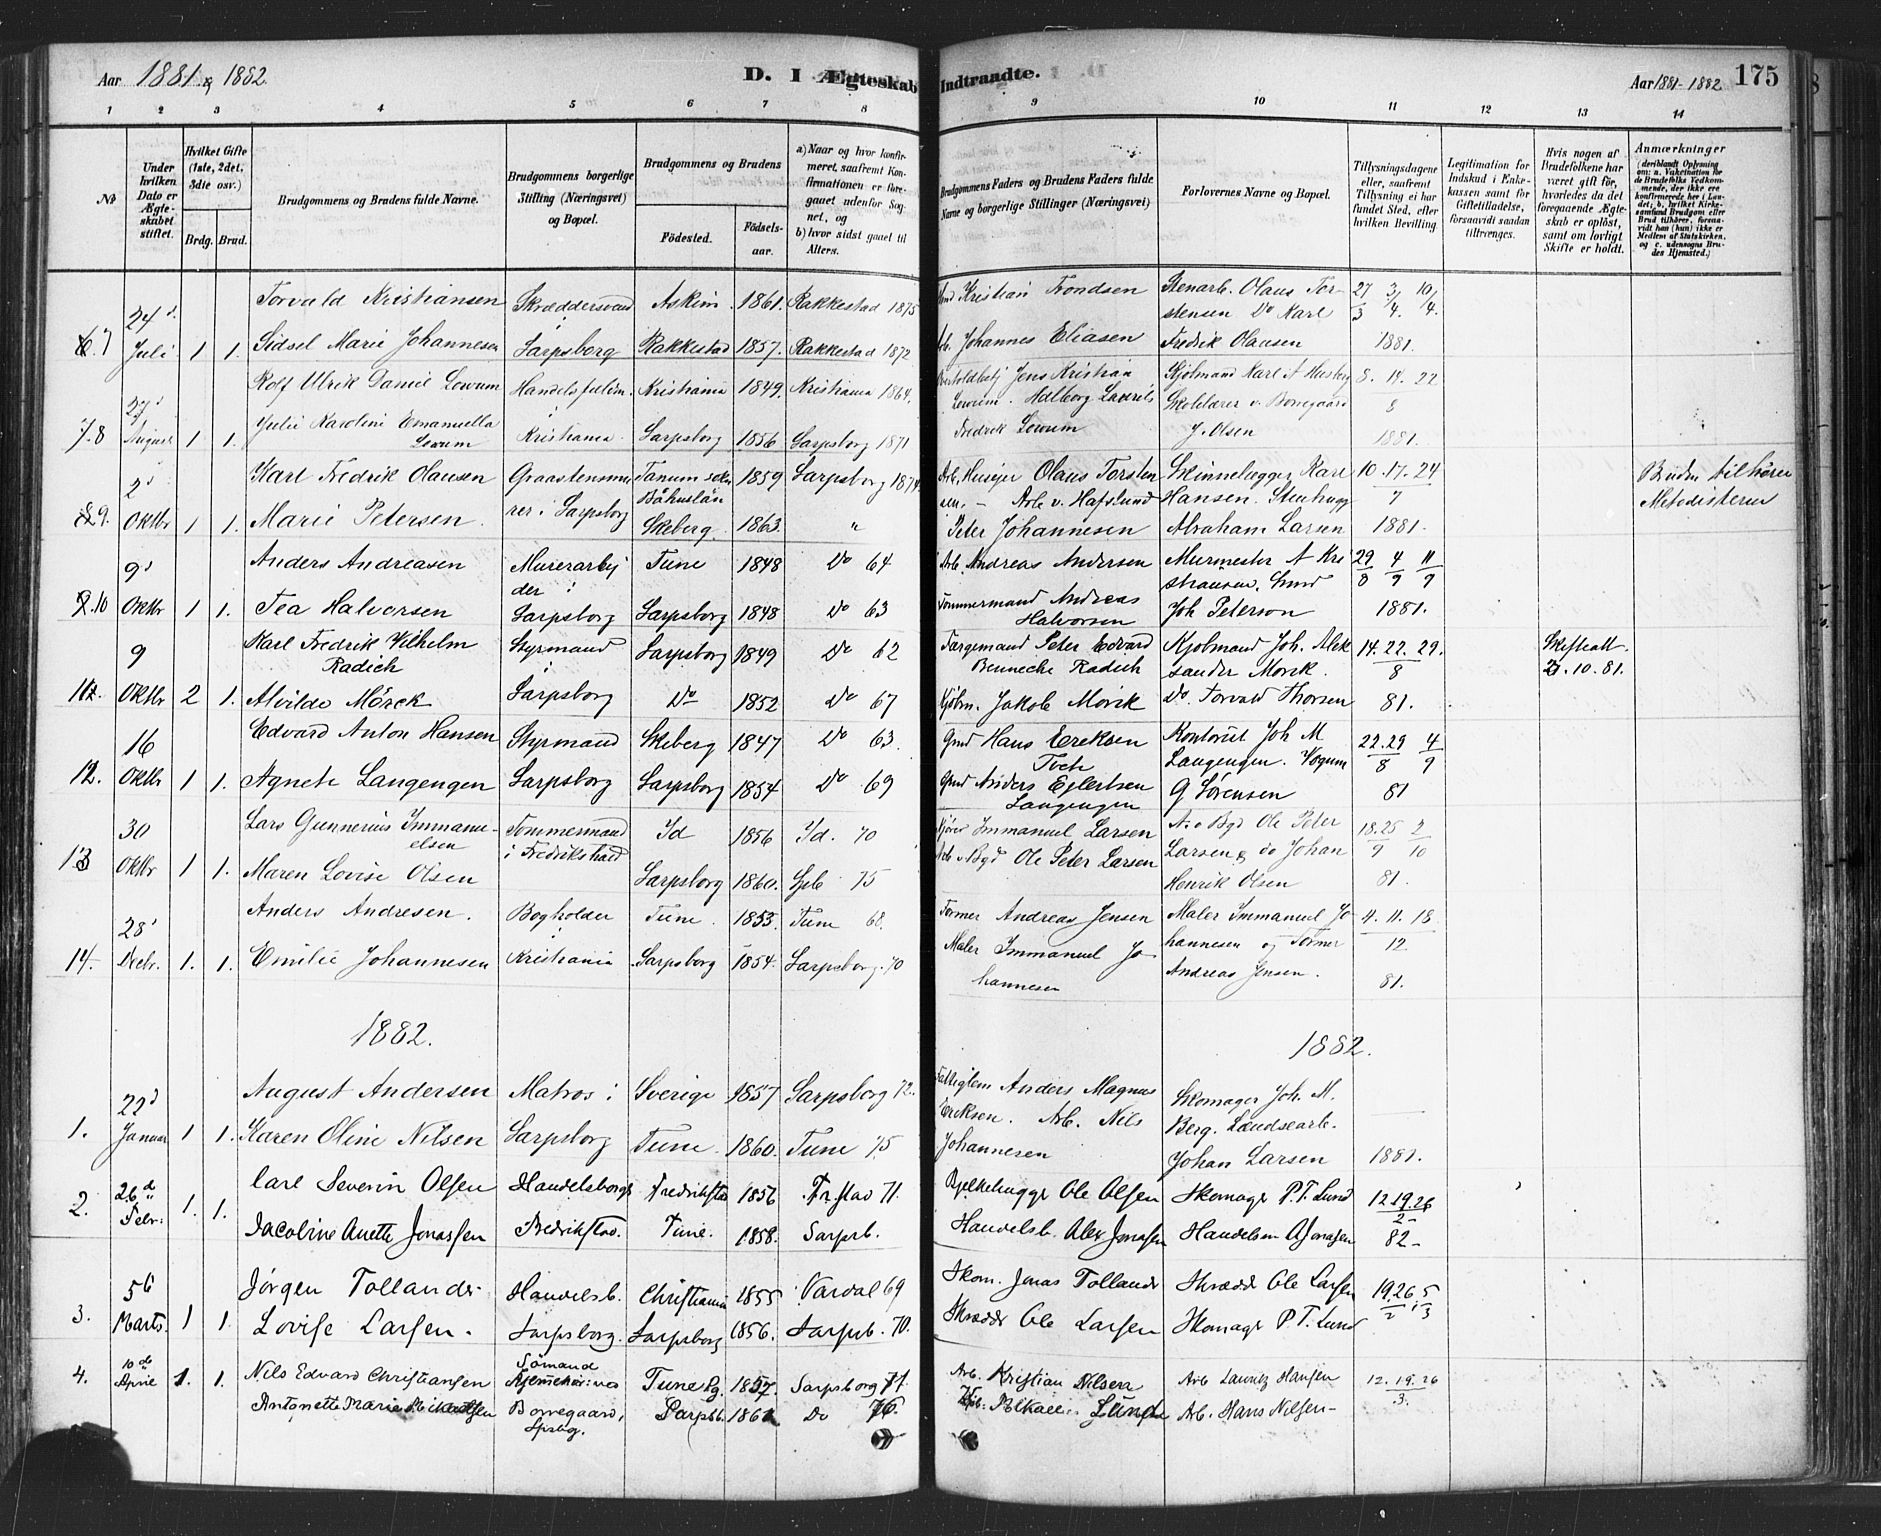 Aar 1881 & 1882 D. I Ægteskab
1 2 3 4 5 6 7 8
No
Under hvilken Dato er Ægteskabet stiftet.
Hvilket Gifte (1ste, 2det, 3die osv.)
Brdg. Brud.
Brudgommens og Brudens fulde Navne.
Brudgommens borgerlige Stilling (Næringsvei) og Bopæl.
Brudgommens og Brudens
Fødested. Fødselsaar.
a) Naar og hvor konfirmeret, saafremt Konfirmationen er foregaaet udenfor Sognet, og
b) hvor sidst gaaet til Alters.
24d Torvald Kristiansen Skræddersvend Askim 1861 Rakkestad 1875
7 Juli 1 1. Sidsel Marie Johannesen Sarpsborg Rakkestad 1857. Rakkestad 1872
Rolf Ulrik Daniel Lowum Kristiania 1849. Kristiania 1864.
27d Julie Karoline Emanuella
8 August 1 1. Lowum Kristiania Sarpsborg 1856 Sarpsborg 1871
2d Karl Fredrik Olausen Graastensmu Tanum sokn 1859 Sarpsborg 1874
Båhuslän
9. Oktbr 1 1. Marie Petersen. rer i Sarpsborg Skeberg 1863. "
9d Anders Andreasen Murerarbej Tune 1848 Do 64
der i
10 Oktbr 1 1. Tea Halvorsen Sarpsborg Sarpsborg 1848 Do 63
9 Karl Fredrik Vilhelm Styrmand Sarpsborg 1849 Do 62
Radich i
11. Oktbr 2 1. Alvilde Mörck Sarpsborg Do 1852 Do 67
16 Edvard Anton Hansen Styrmand Skeberg 1847 Do 63.
12. Oktbr 1 1. Agnete Langengen Sarpsborg Sarpsborg 1854 Do 69
30 Lars Gunnerius Immanu- Tømmermand Id 1856 Id. 70
elsen i Fredrikshald
13 Oktbr 1 1. Maren Lovise Olsen Sarpsborg 1860. 75
28d Anders Andresen. Bogholder i Tune. 1853. Tune 68.
14. 1. 1. Emilie Johannesen Kristiania Sarpsborg 1854. Sarpsborg. 70
1882.
22d August Andersen Matros i Sverige 1857 Sarpsborg 72.
1. Januar 1 1. Karen Oline Nilsen Sarpsborg Tune. 1860. Tune 75
26d Carl Severin Olsen Handelsborgr Fredrikstad 1856 Fr.stad 71.
2. Febr: 1. 1. Jacobine Anette Jonassen Fredrikstad. Tune. 1858. Sarpsb.
5te Jørgen Tollander Handelsb. Christiania 1855 Vardal 69
3. Marts. 1 1. Lovise Larsen. Sarpsborg. Sarpsborg 1856. Sarpsb. 70.
10de Nils Edvard Christiansen Sömand Tune 1857. Sarpsborg 71.
4. April 1. 1. Antonette Marie Borregaard, Sarpsb. 1861 Do 76.
Spsbg.
Indtraadte. Aar 1881-1882 175
9 10 11 12 13 14
Brudgommens Faders og Brudens Faders fulde Navne og borgerlige Stillinger (Næringsvei)
Forlovernes Navne og Bopæl.
Tillysningsdagene eller, saafremt Tillysning ei har fundet Sted, efter hvilken Bevilling.
Legitimation for Indskud i Enkekassen samt for Giftetilladelse, forsaavidt saadan tiltrænges.
Hvis nogen af Brudefolkene har været gift før, hvorledes da det foregaaende Ægteskab er opløst, samt om lovligt Skifte er holdt.
Anmærkninger
(deriblandt Oplysning om: a. Vaccination for de Brudefolks Vedkommende, der ikke ere konfirmerede her i Landet; b. hvilket Kirkesamfund Brudgom eller Brud tilhører, forsaavidt han (hun) ikke er Medlem af Statskirken, og c. udensogns Brudes Hjemsted.)
Kristian Trondsen Stenarb. Olaus Tor- 27/3 3/4. 10/4.
stensen Do Karl
Arb. Johannes Eliasen Fredrik Olausen 1881.
Jens Kristian Kjøbmand Karl A Husberg 8. 14. 22
Lowum. Skolelærer v. Borregaard 8
Fredrik Lowum J. Olsen 1881.
Arb. Husejer Olaus Torsten Skinnelægger Karl 10. 17. 24 Bruden tilhører
sen. - Arb v. Hafslund Hansen. Stenhugg 7 Metodisterne
Peter Johannesen Abraham Larsen 1881.
Arb. Andreas Andersen Murmester A Kri 29/8 4/9 11/9
stiansen.
Tømmermand Andreas
Halvorsen Joh Peterson 1881.
Peter Edvard Kjøbmand Joh. Alek 14. 22. 29. Skifteatt.
Bennecke Radich sander Mørck. 8 3. 10. 81.
Kjøbm. Jakob Mørck Do. Torvald Thorsen 81.
Gmd Hans Ereksen Kontorist Joh M 22.29/8 4/9
Langengen.
Gmd Anders Eglertsen G Sørensen 81
Langengen
Immanuel Larsen A. v Bgd Ole Peter 18.25/9 2/10
Arb v Bgd Ole Peter Larsen Larsen & do Johan
Henrik Olsen 81.
Andreas Jensen Maler Immanuel Jo 4. 11. 18
Maler Immanuel Jo hannesen og 12
hannesen Andreas Jensen. 81.
1882.
Anders Magnus Skomager Joh. M.
Ereksen. Arb. Nils Berg. Landsearb.
Johannesen Johan Larsen 1881.
Bjelkehuggr Ole Olsen Skomagr P. T. Lund 12 19. 26
2-
Handelsb. Alex Jonassen Handelsm A Jonassen 82-
Skom. Jonas Tollander Skrædd Ole Larsen 19.26/2. 5/3
Skrædd Ole Larsen Skomagr P. T. Lund
Arb. Kristian Nilsen Arb Lauritz Hansen 12. 19. 26
3.
Lund Arb. Hans Nilsen-